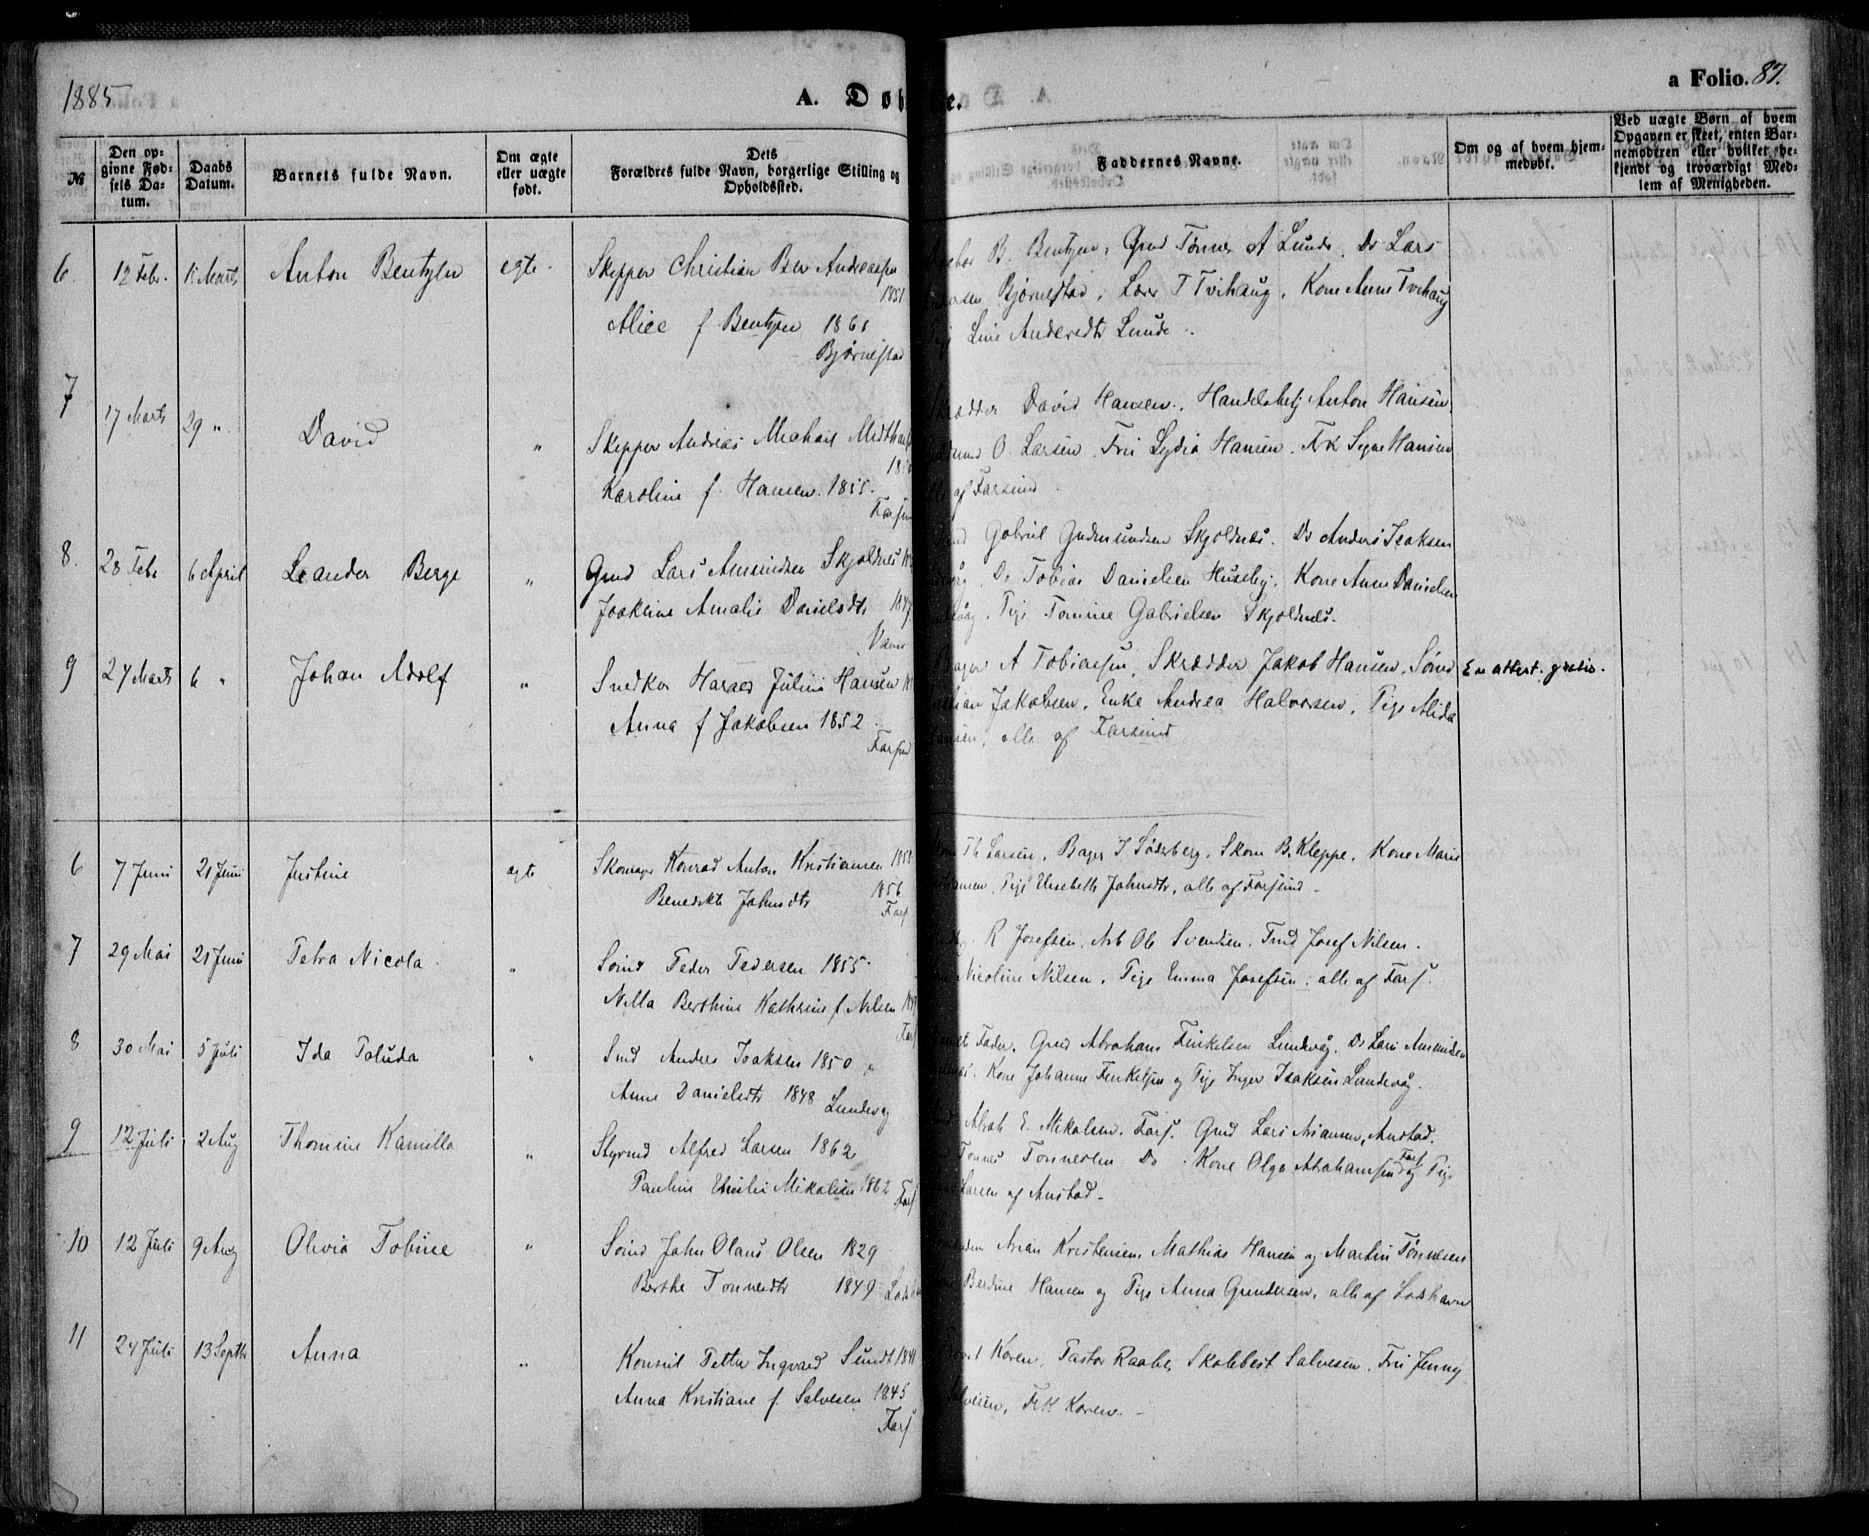 1885
A. Døb
e.
a Folio. 87.
№
Den op-
givne Fød-
sels Da-
tum.
Daabs
Datum.
Barnets fulde Navn.
Om ægte
eller uægte
født.
Dets
Forældres fulde Navn, borgerlige Stilling og
Opholdssted.
Faddernes Navne.
Om og af hvem hjem-
medøbt.
Ved uægte Børn af hvem
Opgaven er skeet, enten Bar-
nemoderen eller hvilket be-
kjendt og troværdigt Med-
lem af Menigheden.
6. 12 Febr. 15 Marts Anton Bentzen egte. Skipper Christian Ber Andreassen
1851
Alice f Bentzen 1861
Bjørnestad
B. Bentzen, Gmd Tønnes A Lunde. Do Lars
Bjørnestad, Lærer T Tvihaug, Kone Anne Tvihaug
Line Andersdtr Lunde.
7 17 Marts 29 " David " Skipper Andreas Michael Midthas
Karoline f. Hansen. 1855.
Farsun
David Hansen, Handelsbetj Anton Hansen.
O. Larsen. Fru Lydia Hansen. Frk Signe Hansen
af Farsund.
8. 28 Febr 6 April Leander Berge " Gmd Lars Amundsen Skjoldnes
Joakine Amalie Danielsdtr 1847
Vanse
Gabriel Gudmundsen Skjoldnes. Do Anders Isaksen
Do Tobias Danielsen Huseby. Kone Anne Danielsen
Pige Tomine Gabrielsen Skjoldnes.
9 24 Marts 6 " Johan Adolf " Snedker Harald Julius Hansen
Anna f Jakobsen 1852.
Farsund
A Tobiassen, Skrædder Jakob Hansen, Sømd
Jakobsen, Enke Andrea Halvorsen, Pige Alida
alle af Farsund
En attest. gratis.
6 7 Juni 21 Juni Justine ægte Skomager Konrad Anton Kristiansen 1858
Benedikte Johnsdtr 1856
Fars
Th Larsen, Bager J Söderberg, Skom B. Kleppe, Kone Marie
Pige Elisabeth Johnsdtr, alle af Farsund
7 29 Mai 21 Juni Petra Nicola " Sømd Peder Pedersen 1855
Nilla Berthine Kathrine f Nilsen
Fars
R Josefsen, Arb Ole Svendsen. Smd Josef Nilsen.
Nicoline Nilsen, Pige Emma Josefsen. alle af Fars.
8 30 Mai 5 Juli Ida Paluda " Smd Anders Isaksen 1850
Anne Danielsdtr 1848 Lundevåg
Fader, Gmd Abraham Finkelsen Lundevåg. Do Lars Amundsen
Kone Johanne Finkelsen og Pige Inger Isaksen Lundevåg.
9 12 Juli 2 Aug Thomine Kamilla " Styrmd Alfred Larsen 1862
Pauline Emilie Mikalsen 1862 Fars
Abrah E. Mikalsen. Fars. Gmd Lars Ariansen, Anstad.
Tønnes Tønnessen Do. Kone Olga Abrahamsen Fars og Pige
Larsen af Anstad.
10 12 Juli 9 Aug Olivia Tobine " Sømd John Olaus Olsen 1829
Berthe Tønnesdtr 1849
Arian Kristensen, Mathias Hansen og Martin Tönnesen
Berdine Hansen og Pige Anna Gundersen, alle af Loshavn
11 24 Juli 13 Septbr Anna " Konsul Petter Ingvard Sundt 1841
Anna Kristiane f. Salvesen 1845
Fars
Koren, Pastor Raabe, Skolebest Salvesen, Fru Jenny
Frk Koren.